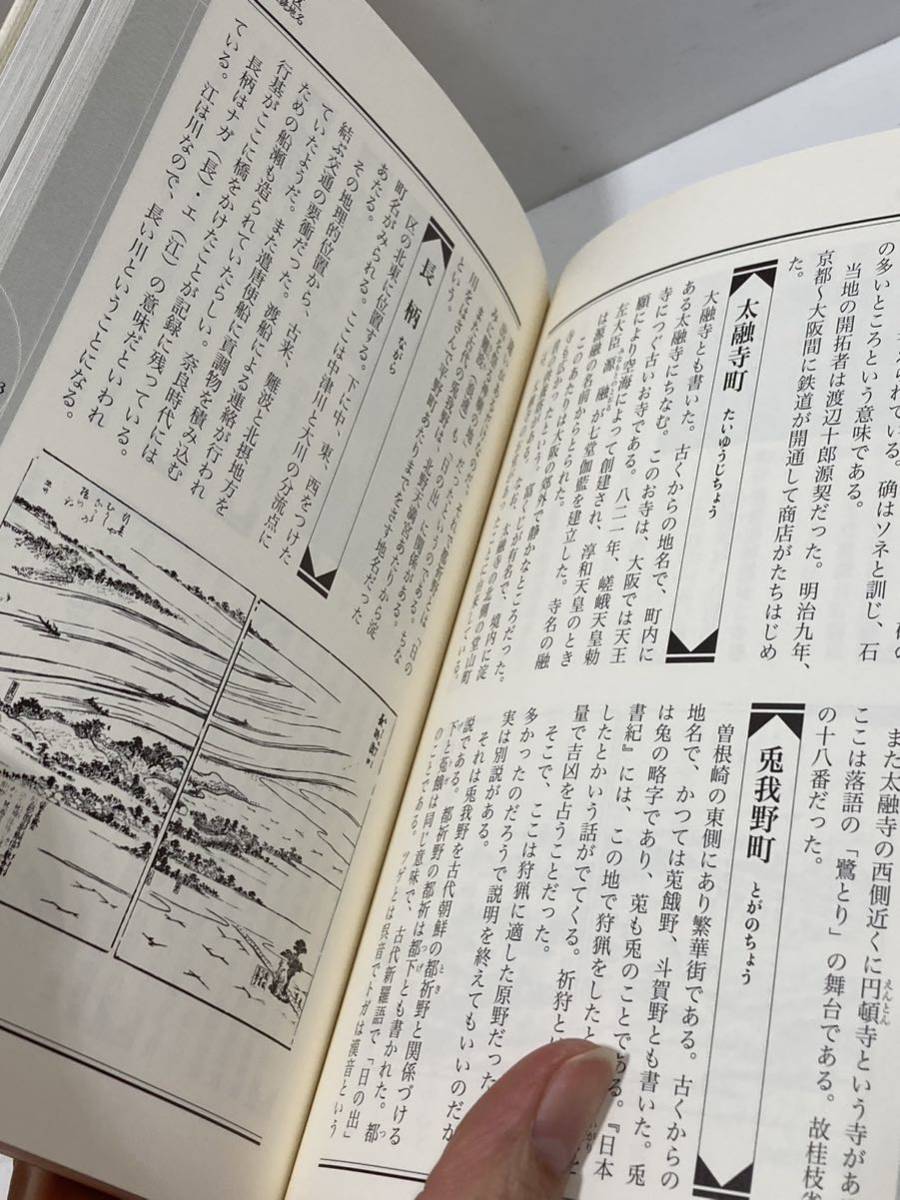 の多いところという意味である。
当地の開拓者は渡辺十郎源契だった。明治九年、
京都〜大阪間に鉄道が開通して商店がたちはじめ
た。
太融寺町 たいゆうじちょう
大融寺とも書いた。古くからの地名で、町内に
ある太融寺にちなむ。このお寺は、大阪では天王
寺につぐ古いお寺である。八二一年、嵯峨天皇勅
願により空海によって創建され、淳和天皇のとき
左大臣源融が七堂伽藍を建立した。寺名の融
は源融の名前からとられた。
このあたりは大阪の郊外で静かなところだった。
また太融寺の西側近くに円頓寺という寺があ
えんとん
ここは落語の「鷺とり」の舞台である。故桂枝雀
の十八番だった。
兎我野町 とがのちょう
曽根崎の東側にあり繁華街である。古くからの
地名で、かつては菟餓野、斗賀野とも書いた。兎
は兔の略字であり、菟も兎のことである。『日本
書紀』には、この地で狩猟をしたと
したとかいう話がでてくる。祈狩とは
量で吉凶を占うことだった。
そこで、ここは狩猟に適した原野だった
多かったのだろうで説明を終えてもいいのだが
実は別説がある。
それは兎我野を古代朝鮮の都祈野と関係づける
説である。都祈野の都祈は都下とも書かれた。都
下と菟餓は同じ意味で、古代新羅語で「日の出」
のことである。ツゲとは呉音でトガは漢音という
だったというのである。「日の
また古代の菟餓野は、北野天満宮あたりから淀
川をはさんで平野町あたりまでをさす地名だった
という。
長柄 ながら
区の北東に位置する。下に中、東、西をつけた
町名がみられる。ここは中津川と大川の分流点に
あたる。
その地理的位置から、古来、難波と北摂地方を
結ぶ交通の要衝だった。渡船による連絡が行われ
ていたようだ。また遣唐使船に貢調物を積み込む
ための船瀬も造られていたらしい。奈良時代には
行基がここに橋をかけたことが記録に残っている。
長柄はナガ(長)・エ(江)の意味だといわれ
ている。江は川なので、長い川ということになる。